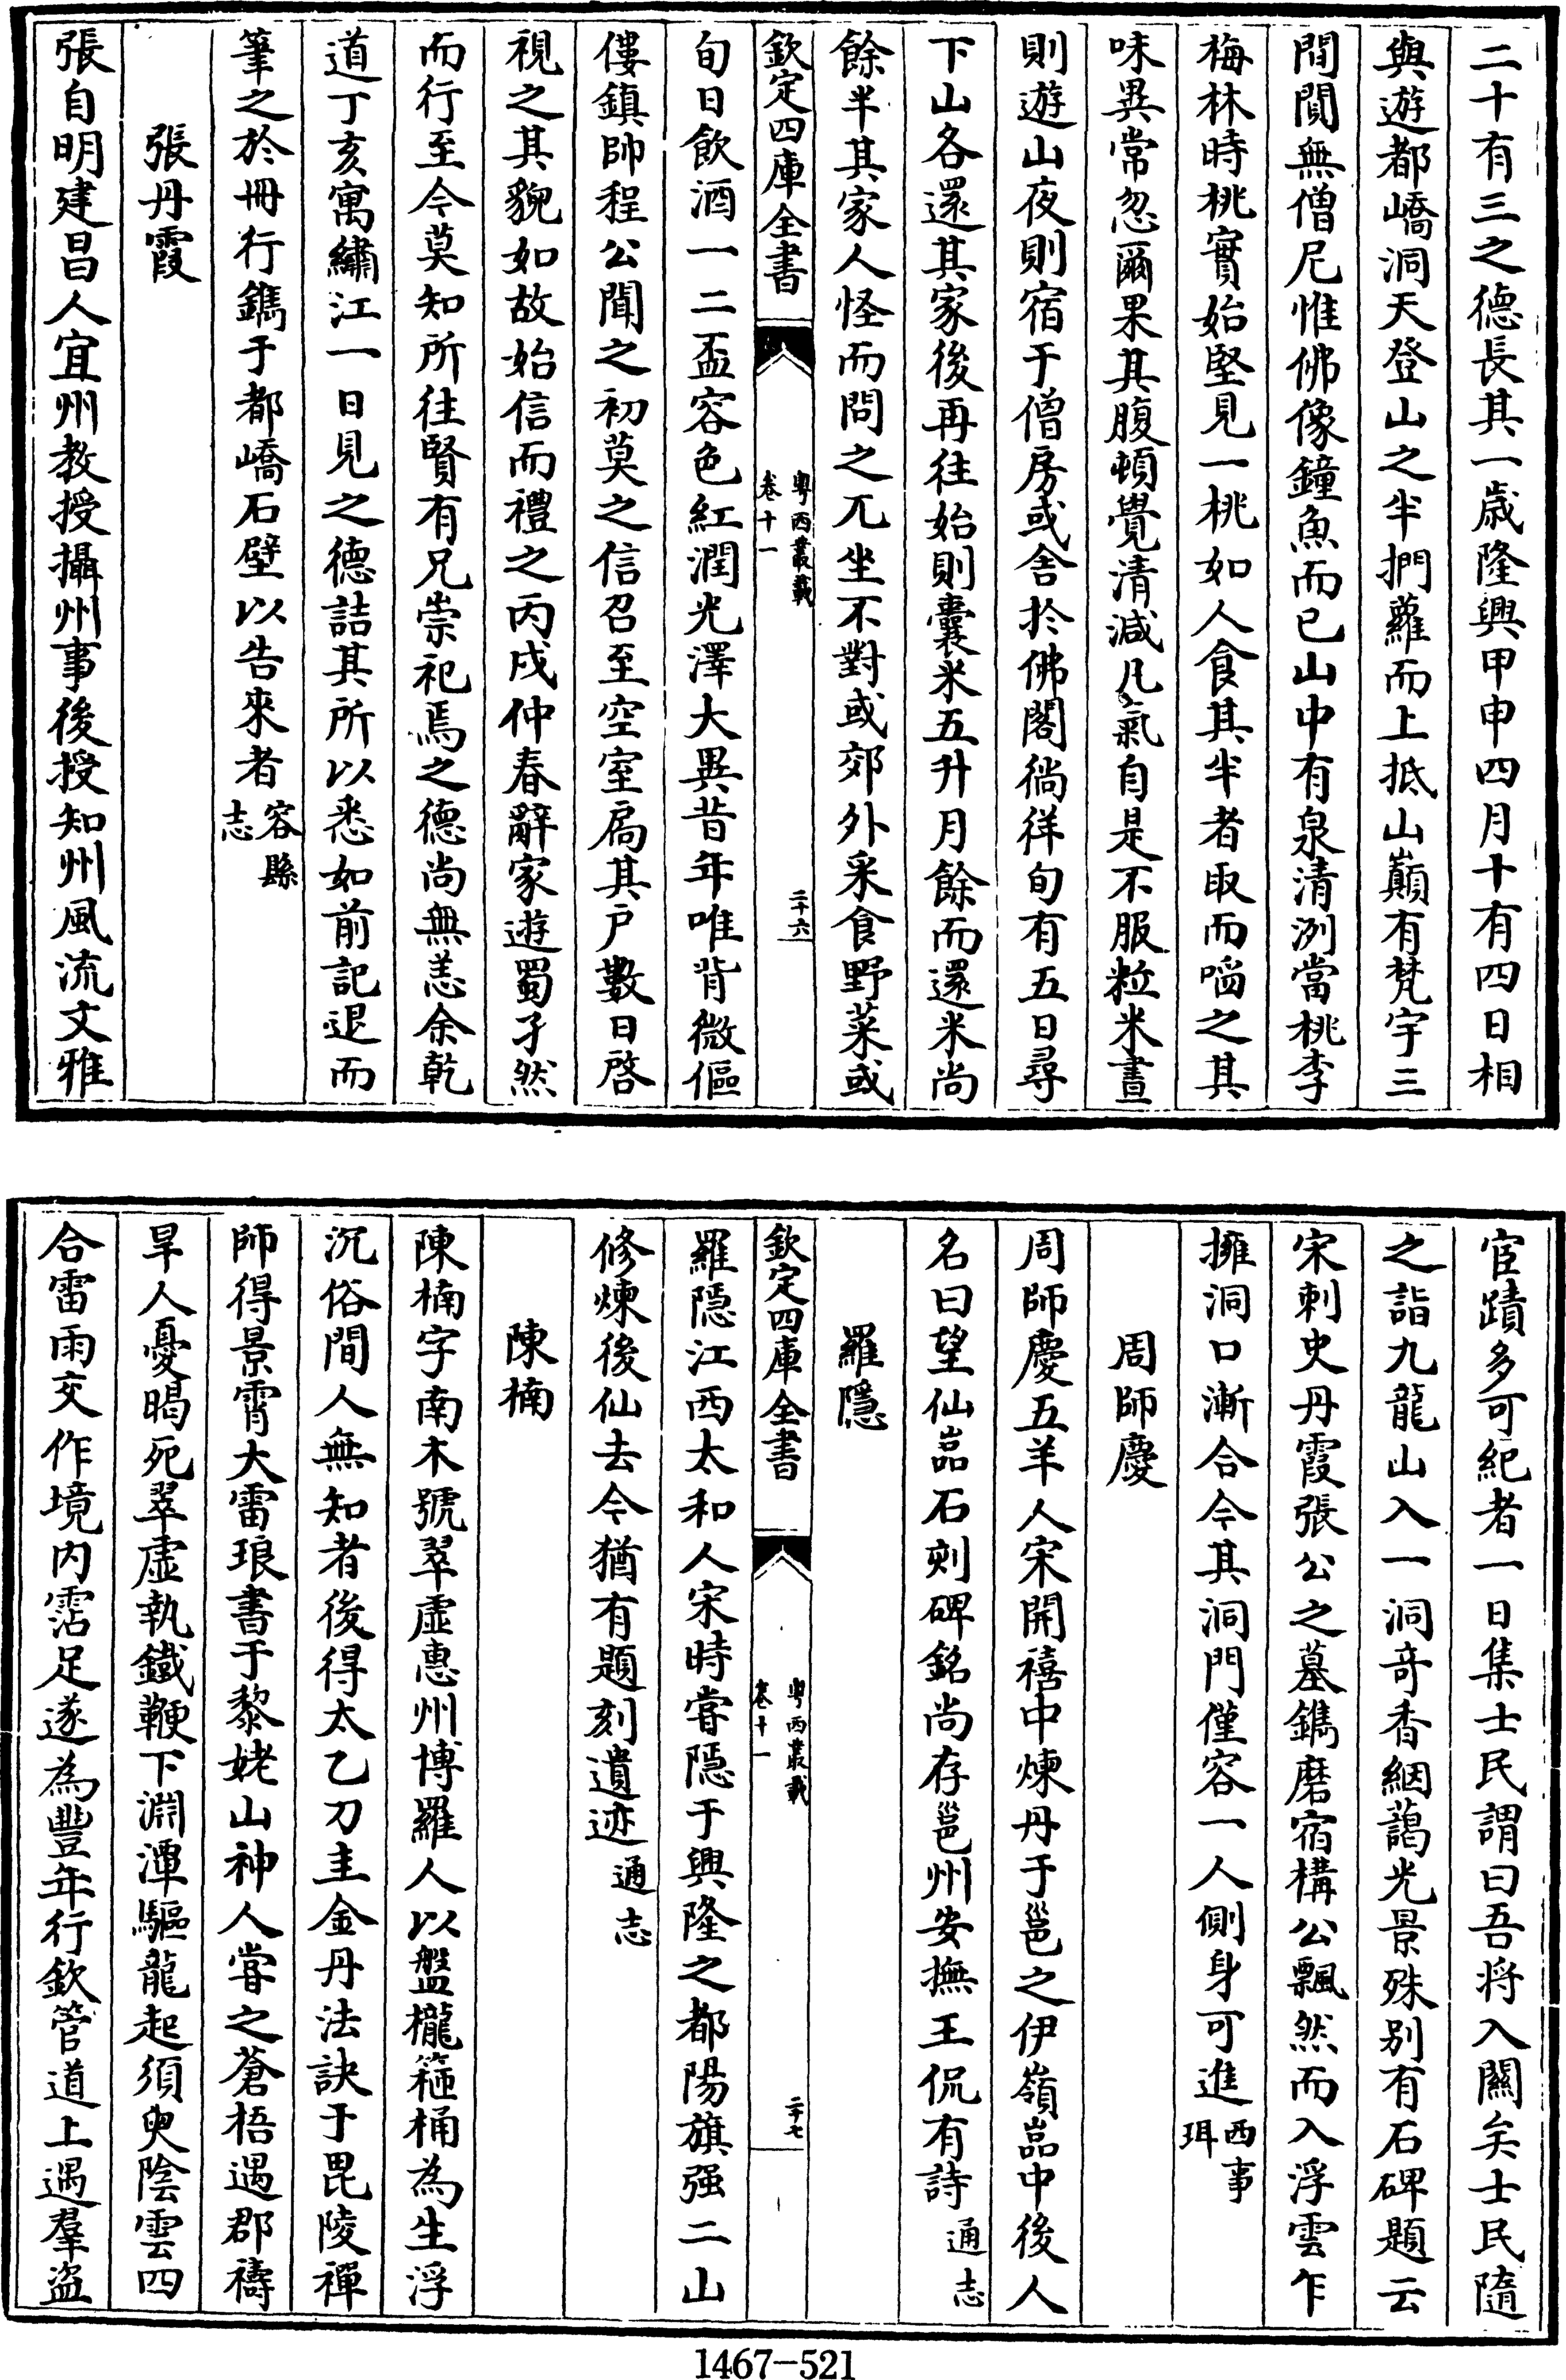 二十有三之德長其一歲隆興甲申四月十有四日相
與遊都嶠洞天登山之半捫蘿而上抵山巔有梵宇三
間閴無僧尼惟佛像鐘魚而已山中有泉清洌當桃李
梅林時桃實始堅見一桃如人食其半者取而啗之其
味異常忽爾果其腹頓覺清減凡氣自是不服粒米晝
則遊山夜則宿于僧房或舍於佛閣徜徉旬有五日尋
下山各還其家後再往始則囊米五升月餘而還米尚
餘半其家人怪而問之兀坐不對或郊外采食野菜或
欽定四庫全書
粤西叢載
卷十一
二十六
旬日飲酒一二盃容色紅潤光澤大異昔年唯背微傴
僂鎮帥程公聞之初莫之信召至空室扃其户數日啓
視之其貌如故始信而禮之丙戌仲春辭家遊蜀孑然
而行至今莫知所往賢有兄崇祀焉之德尚無恙余乾
道丁亥寓繡江一日見之德詰其所以悉如前記退而
筆之於冊行鐫于都嶠石壁以告來者容縣志
張丹霞
張自明建昌人宜州教授攝州事後授知州風流文雅
宦蹟多可紀者一日集士民謂曰吾将入關矣士民隨
之詣九龍山入一洞竒香絪藹光景殊别有石碑題云
宋刺史丹霞張公之墓鐫磨宿構公飄然而入浮雲乍
擁洞口漸合今其洞門僅容一人側身可進西事珥
周師慶
周師慶五羊人宋開禧中煉丹于邕之伊嶺嵒中後人
名曰望仙嵒石刻碑銘尚存邕州安撫王侃有詩通志
羅隱
欽定四庫全書
粤西叢載
卷十一
二十七
羅隱江西太和人宋時甞隱于興隆之都陽旗强二山
修煉後仙去今猶有題刻遺迹通志
陳楠
陳楠字南木號翠虛惠州博羅人以盤櫳箍桶為生浮
沉俗間人無知者後得太乙刀圭金丹法訣于毘陵禪
師得景霄大雷琅書于黎姥山神人甞之蒼梧遇郡禱
旱人憂暍死翠虛執鐵鞭下淵潭驅龍起須臾陰雲四
合雷雨交作境内霑足遂為豐年行欽管道上遇羣盜
1467-521